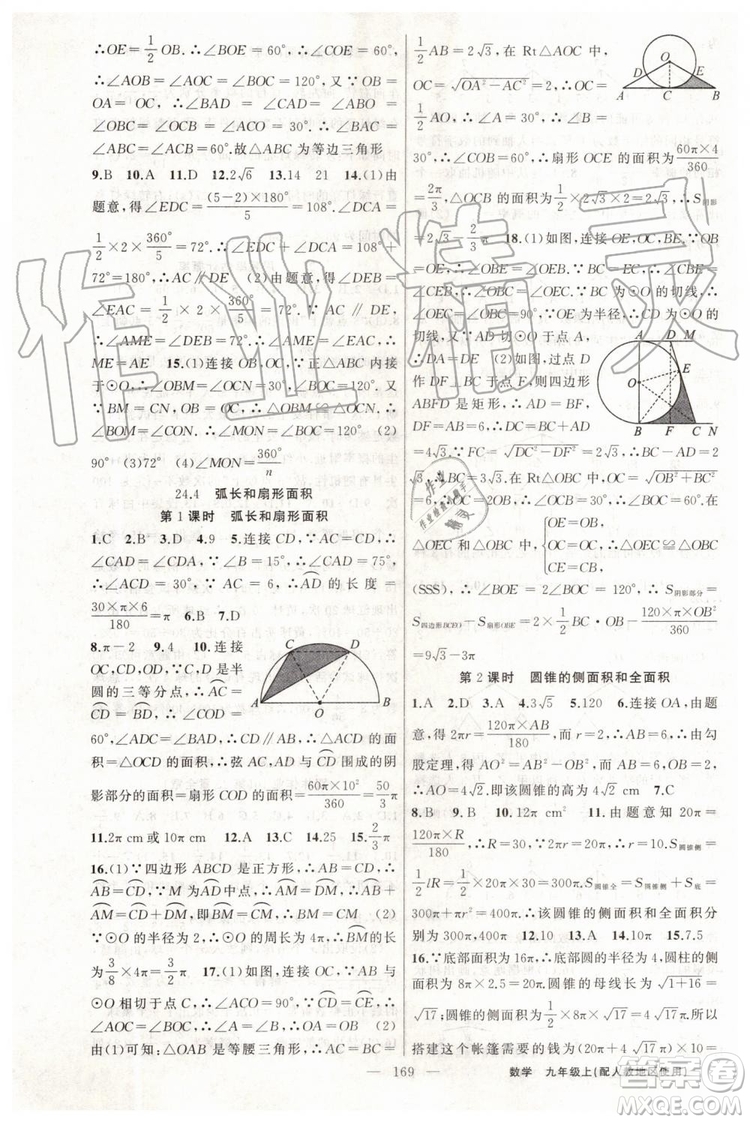 ∴OE=1/2 OB.∴∠BOE=60°,∠COE=60°,
∴∠AOB=∠AOC=∠BOC=120°,又∵OB=
OA=OC,∴∠BAD=∠CAD=∠ABO=
∠OBC=∠OBC=∠OCA=30°.∴∠BAC=
∠ABC=60°.故△ABC为等边三角形
9.B 10.A 11.D 12.2√3 13.14 21 14.(1)由
题意,得∠EDC=(5-2)×180°/5=108°.∠DCA=
1/2×2×360°/5=72°.∴∠EDC+∠DCA=108°+
72°=180°.∴AC∥DE (2)由题意,得∠DEB=
∠EAC=1/2×2×360°/5=72°.∵AC∥DE,
∴∠AME=∠DEB=72°.∴∠AME=∠EAC,
∴ME=AE 15.(1)连接OB,OC,∵正△ABC内接
于⊙O,∴∠OBM=∠OCN=30°,∠BOC=120°.又
∵BM=CN,OB=OC,∴△OBM≌△OCN(SAS).
∴∠BOM=∠CON,∴∠MON=∠BOC=120° (2)
90° (3)72° (4)∠MON=360°/n
24.4 弧长和扇形面积
第1课时 弧长和扇形面积
1.C 2.B 3.D 4.9 5.连接CD,∵AC=CD,
∴∠A=∠CDA,∵∠B=15°,∴∠CDA=75°,
∴∠A=75°,∴∠ACD=30°,∴AD的长度=
30×π×6/180=π 6.B 7.D
8.π-2 9.4 10.连接
OC,CD,OD,∵C,D是半
圆的三等分点,∴AC=
CD.∴∠AOC=∠COD=
60°,∠ADC=∠BAD,∴CD∥AB,∴S△ACD=
S△OCD,∴∠COD=60°,∴弦AC,AD与CD围成的阴
影部分的面积=扇形COD的面积=60π×10²/360=50/3 π
11.2π cm或10π cm 12.A 13.C 14.25 15.2/3 π
16.(1)∵四边形ABCD是正方形,∴AB=CD,∴
AB=CD,∵M为AD中点,∴AM=DM,∴AB+
AM=CD+DM,即BM=CM,∴BM=CM (2)
∵⊙O的半径为2,∴⊙O的周长为4π,∴BM的长=
3/8×4π=3/2 π 17.(1)如图,连接OC,∵AB与⊙O相
切于点C,∴∠ACO=90°,∵CD=CE,∴
∠AOC=∠BOC,∴∠A=∠B,∴OA=OB (2)
由(1)可知:△OAB是等腰三角形,∴AC=BC=
1/2 AB=2√3,在Rt△AOC中,
OC=√(OA²-AC²)=2=
1/2 AO,∴∠A=30°,∴∠B=30°,
∴∠COB=60°,∴扇形OCE的面积=60π×4/360
=2π/3,△OCB的面积为1/2×2√3×2=2√3,∴S阴影
=2√3-2/3 π 18.(1)如图,连接OE,OC,∵CB=
CE,OB=OE,OC=OC,∴△OBC≌△OEC,
∴∠OEC=∠OBC.∵BC为⊙O的切线,∴∠OEC=
∠OBC=90°,∵OE为半径,∴CD为⊙O的
切线,∵AD切⊙O于点A,
∴DA=DE (2)如图,过点D
作DF⊥BC于点F,则四边形
ABFD是矩形,∴AD=BF,
DF=AB=6,∴DC=BC+AD
=4√3,∵FC=√(DC²-DF²)=2√3,∴BC-AD=
2√3,∴BC=3√3,在Rt△OBC中,tan∠BOC=
BC/BO=√3,∴∠BOC=60°,在
△OEC和△OBC中,{OE=OB, OC=OC, CE=CB,∴△OEC≌△OBC
(SSS),∴∠BOE=2∠BOC=120°,∴S阴影部分=
S四边形BCEO-S扇形OBE=2×1/2 BC·OB-120×π×OB²/360
=9√3-3π
第2课时 圆锥的侧面积和全面积
1.A 2.D 3.A 4.3√5 5.120 6.连接OA,由题
意,得OB=2,而2πr=120π×AB/180,∴AB=6,由勾
股定理,得AO=4√2,所以该圆锥的高为4√2 cm 7.C
8.B 9.B 10.12π cm² 11.由题意知2π×10=
120π×R/180,∴R=30,2πr=20π,r=10,∴S圆锥侧=
1/2 lR=1/2×20π×30=300π,S圆锥全=S圆锥侧+S底=
100π+300π=400π,∴该圆锥的侧面积和全面积分
别为300π,400π 12.10 13.A 14.C 15.7.5
16.∵底部面积为16π m²,∴底部圆的半径为4 m,底
部周长为8π m,圆柱的高为2.5 m,∴圆柱的侧面积为
8π×2.5=20π(m²),圆锥的母线长为√(1+16)=
√17;圆锥的侧面积为1/2×8π×√17=4√17π,所以
搭建这个帐篷的需要的篷布为(20+4√17)π m²
169
数学 九年级上(配人教地区使用)
作业精灵